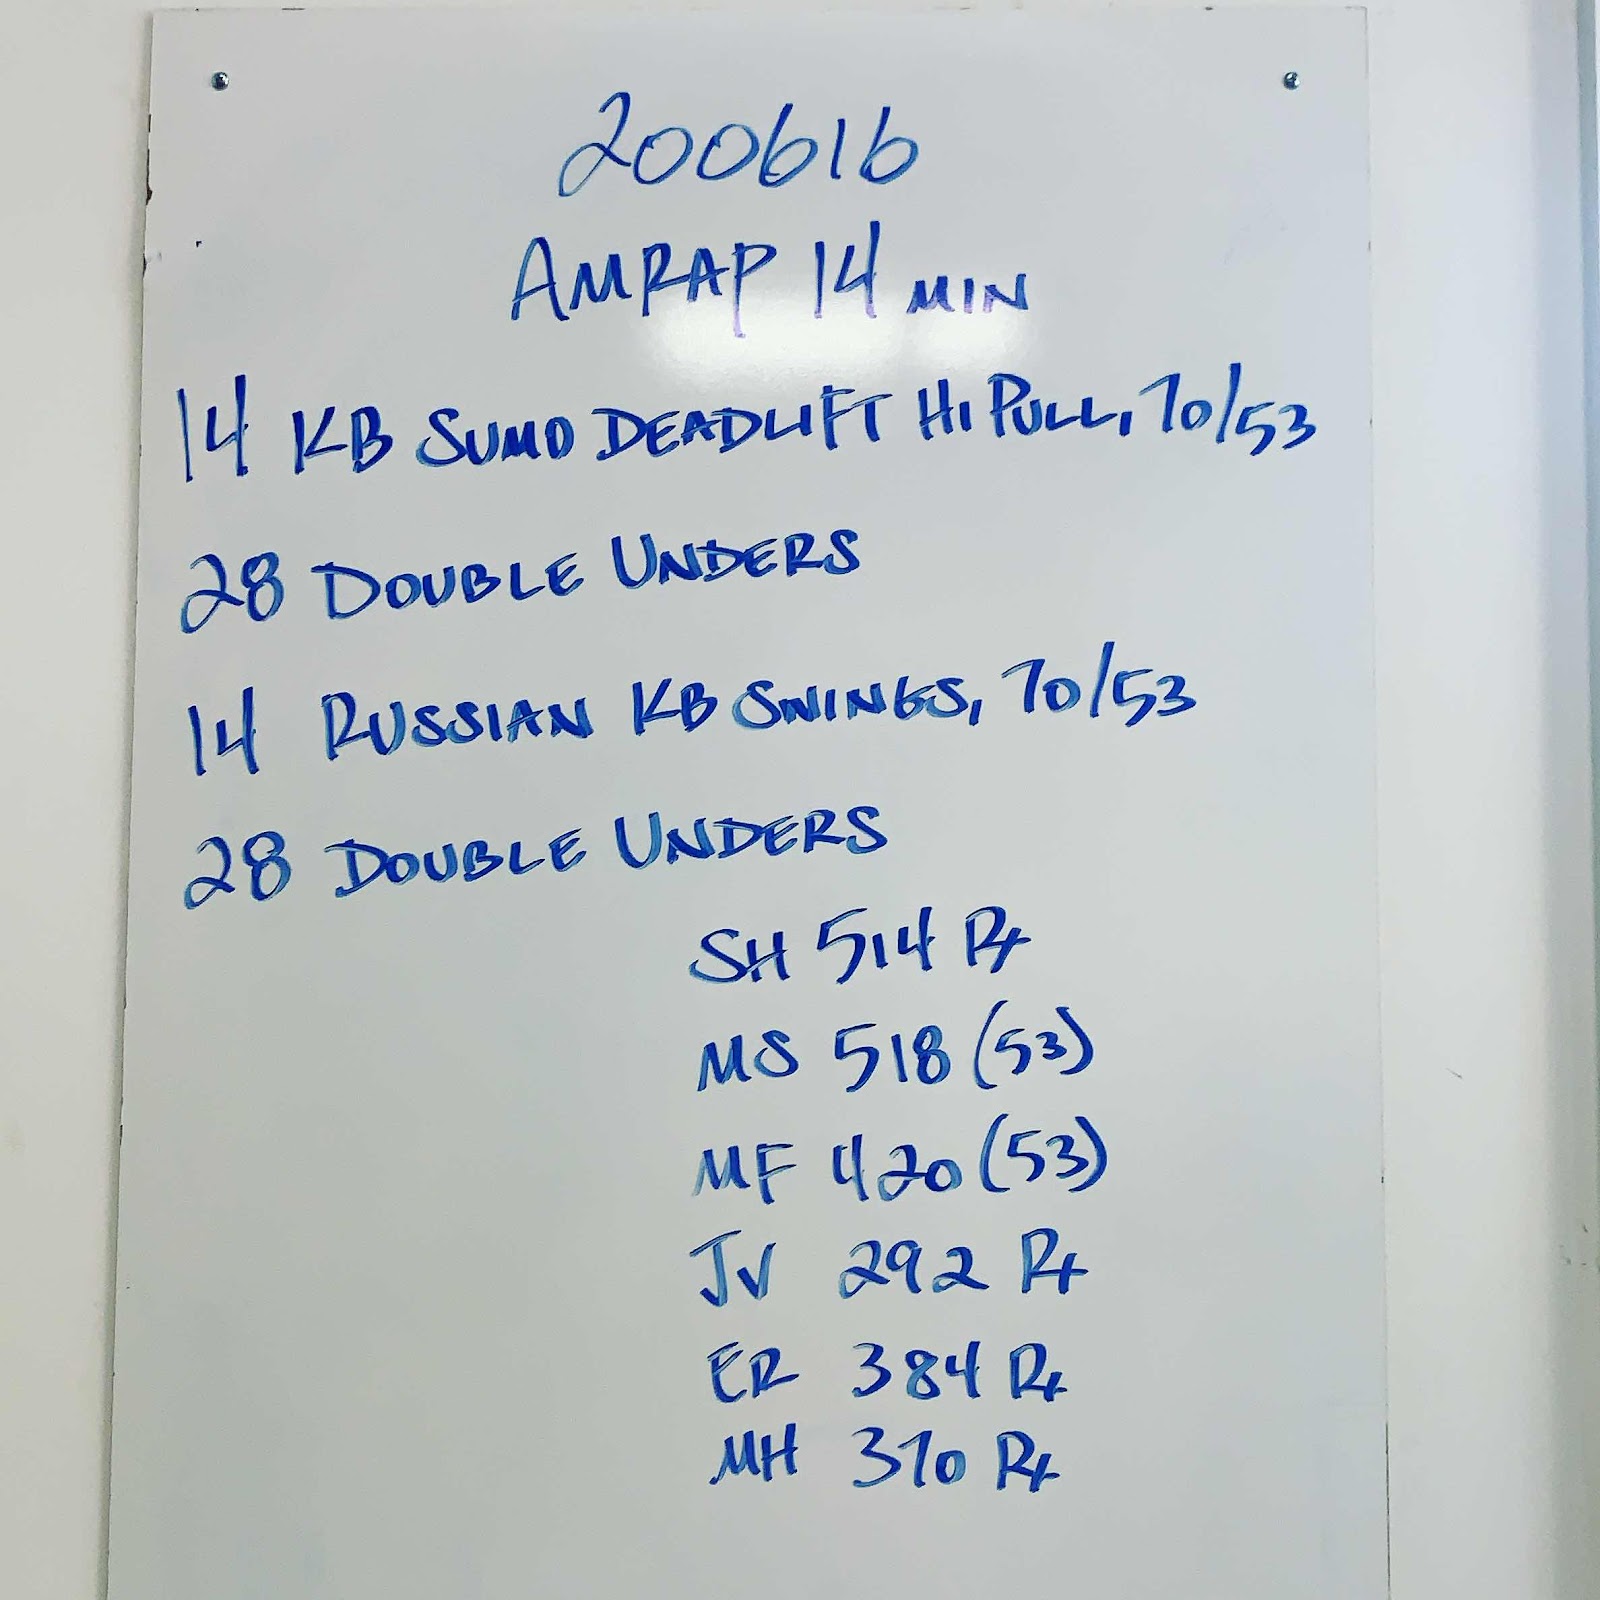 200616
AMRAP 14 MIN
14 KB SUMO DEADLIFT HI PULL, 70/53
28 DOUBLE UNDERS
14 RUSSIAN KB SWINGS, 70/53
28 DOUBLE UNDERS
SH 514 Rx
MS 518 (53)
MF 420 (53)
JV 292 Rx
ER 384 Rx
MH 370 Rx